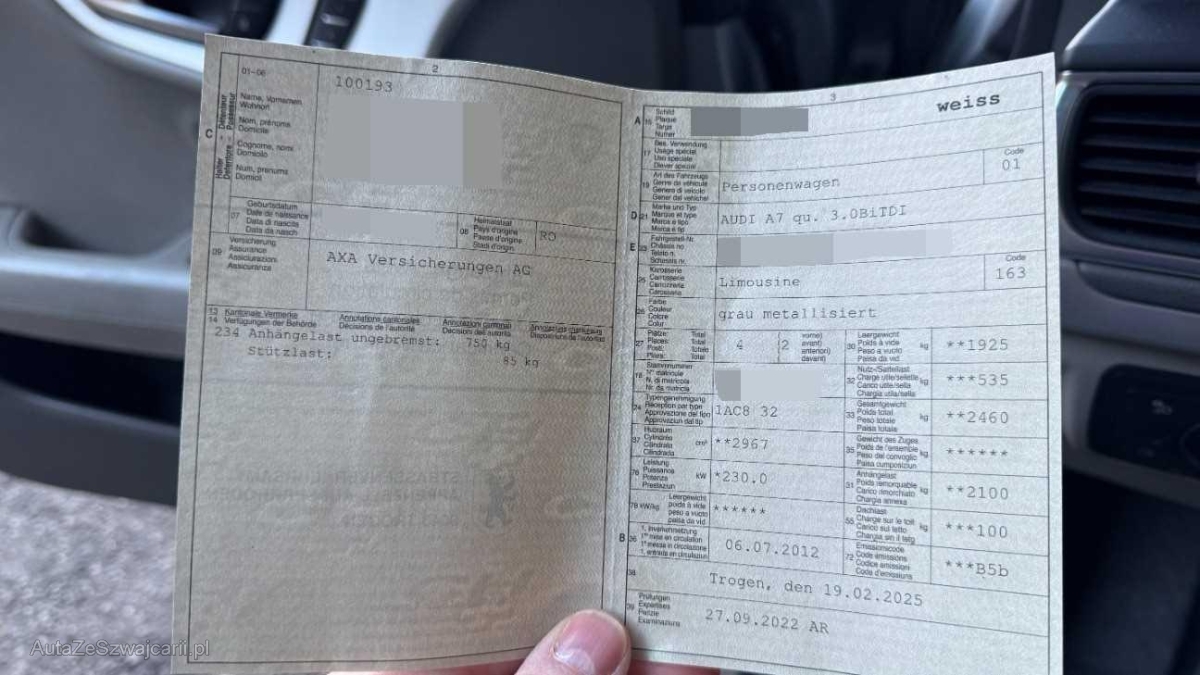 2
01-06
100193
C
Name, Vornamen
Wohnort
Nom, prénoms
Domicile
Cognome, nomi
Domicilio
Num, prenums
Domicil
07
Geburtsdatum
Date de naissance
Data di nascita
Data da nasch.
08
Heimatstaat
Pays d'origine
Paese d'origine
Stadi d'origin.
RO
09
Versicherung
Assurance
Assicurazioni
Assicuranza
AXA Versicherungen AG
13 Kantonale Vermerke
14 Verfügungen der Behörde
Annotations cantonales
Décisions de l'autorité
Annotazioni cantonali
Decisioni dell'autorità
234 Anhängelast ungebremst: 750 kg
Stützlast: 85 kg
3
1
weiss
A
15
Schild
Plaque
Targa
Numer
17
Bes. Verwendung
Usage spécial
Uso speciale
Diever spezial
Code
01
19
Art des Fahrzeugs
Genre de véhicule
Genere di veicolo
Gener dal vehichel
Personenwagen
D 21
Marke und Typ
Marque et type
Marca e tipo
Marca e tip
AUDI A7 qu. 3.0BiTDI
E 23
Fahrgestell-Nr.
Châssis no
Telaio n.
Schassis nr.
25
Karosserie
Carrosserie
Carrozzeria
Carossaria
Limousine
Code
163
26
Farbe
Couleur
Colore
Colur
grau metallisiert
27
Plätze: Total
Places: Total
Posti: Totale
Plazs: Total
4
(2
vorne)
avant)
anteriori)
davant)
30
Leergewicht
Poids à vide
Peso a vuoto
Paisa da vid
kg
**1925
18
Stammnummer
N° matricule
N. di matricola
Nr. da matricla
32
Nutz-/Sattellast
Charge utile/sellette
Carico utile/sella
Chargia utila/sella
kg
***535
24
Typengenehmigung
Réception par type
Approvazione del tipo
Approvaziun dal tip
1AC8 32
33
Gesamtgewicht
Poids total
Peso totale
Paisa totala
kg
**2460
37
Hubraum
Cylindrée
Cilindrata
Cilindrada
cm³
**2967
35
Gewicht des Zuges
Poids de l'ensemble
Peso del convoglio
Paisa cumposiziun
kg
******
76
Leistung
Puissance
Potenza
Prestaziun
kW
*230.0
31
Anhängelast
Poids remorquable
Carico rimorchiato
Chargia annexa
kg
**2100
78 kW/kg
Leergewicht
poids à vide
peso a vuoto
paisa da vid
******
55
Dachlast
Charge sur le toit
Carico sul tetto
Chargia sin il tetg
kg
***100
B 36
1. Inverkehrsetzung
1re mise en circulation
1a messa in circolazione
1. entrada en circulaziun
06.07.2012
72
Emissionscode
Code émissions
Codice emissioni
Code d'emissiuns
***B5b
38
Trogen, den 19.02.2025
39
Prüfungen
Expertises
Perizie
Examinaziuns
27.09.2022 AR
AutaZeSzwajcarii.pl